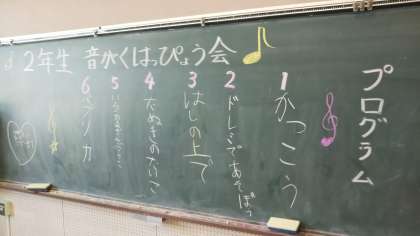 2年生 音がくはっぴょう会
プログラム
1 かっこう
2 ドレミであそぼっ
3 はしの上で
4 たぬきのたいこ
6 ペンノカ